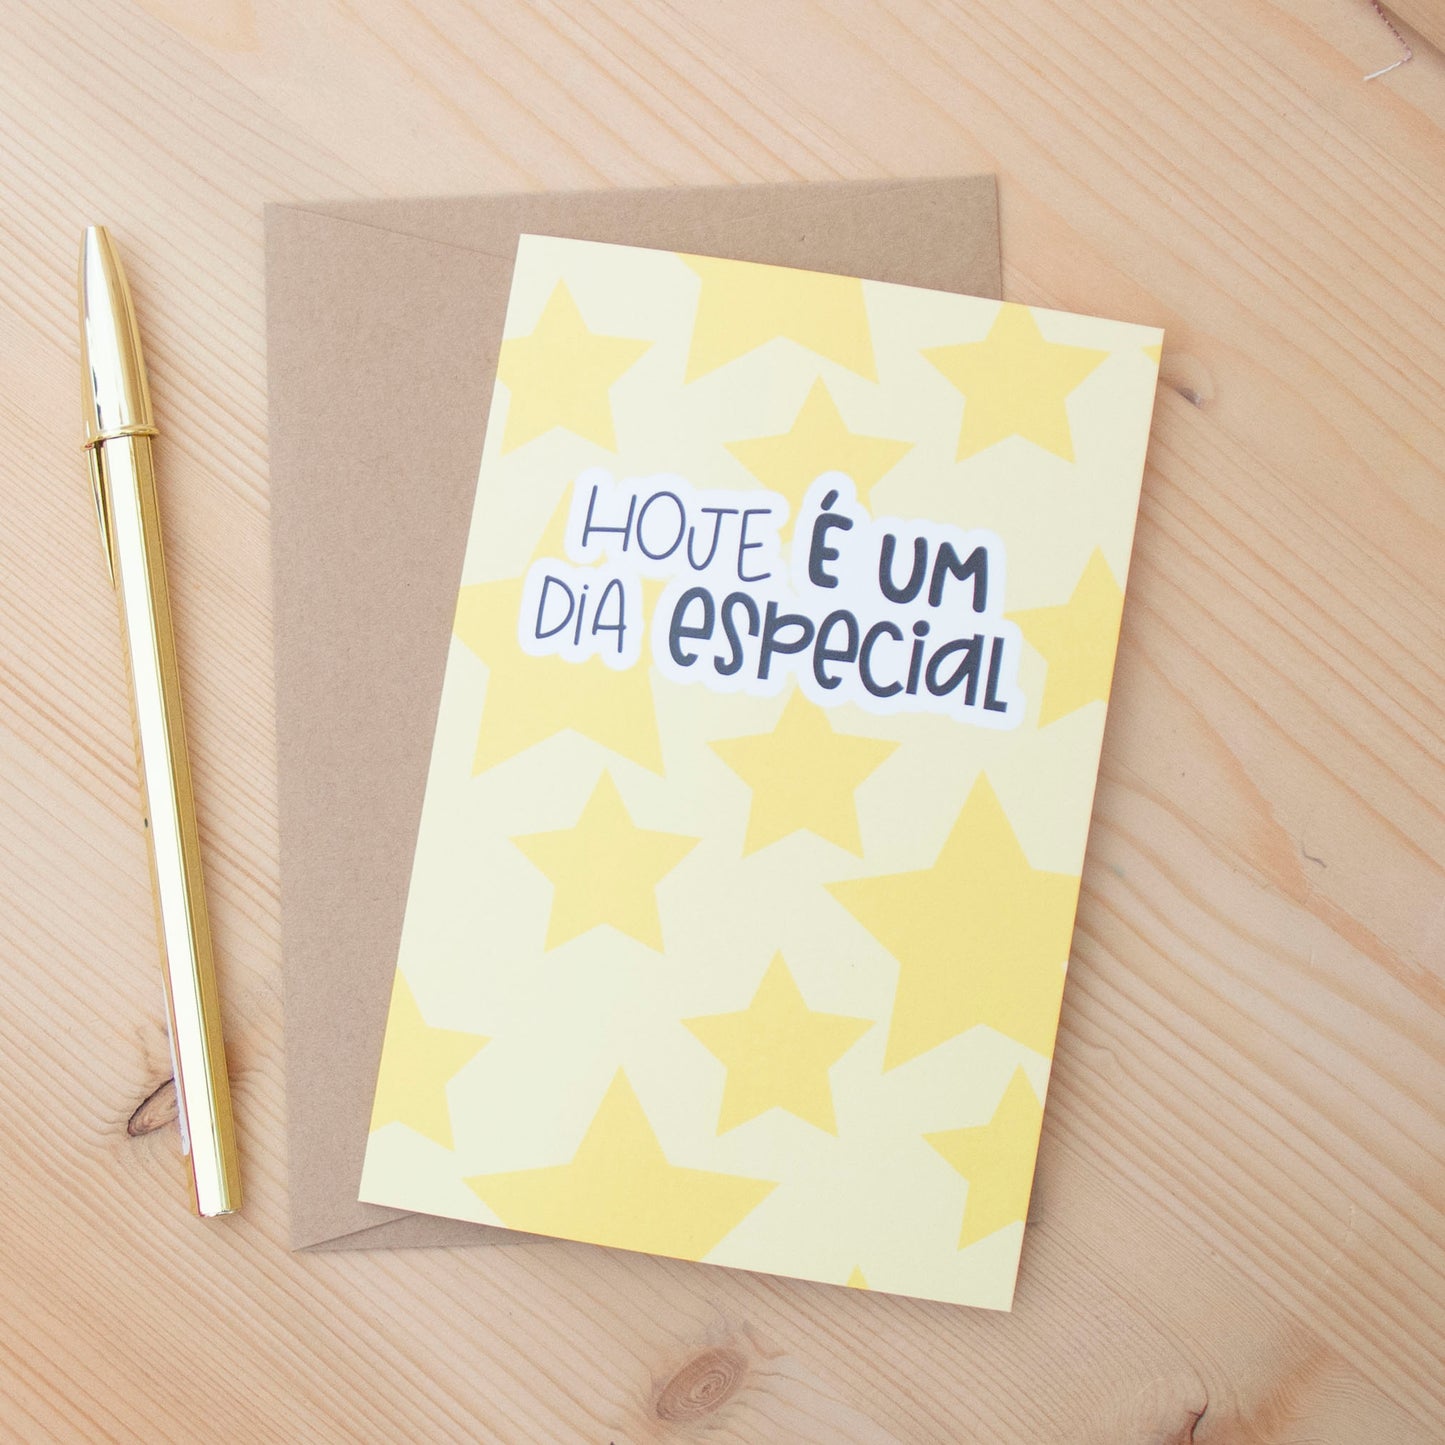 HOJE É UM
DIA especial